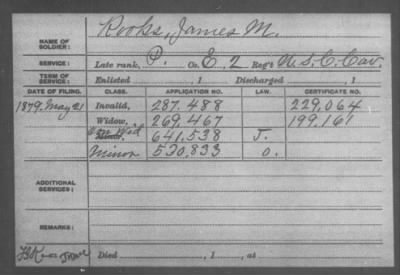 NAME OF SOLDIER: Rooks, James M.
SERVICE: Late rank, P. Co. E, 2 Reg't U.S.C. Cav.
TERM OF SERVICE: Enlisted , 1 Discharged , 1
DATE OF FILING. CLASS. APPLICATION NO. LAW. CERTIFICATE NO.
1879, May 21 Invalid, 287.488 229,064
Widow, 269,467 199,161
Wid 641,538 J.
Minor 530,833 O.
ADDITIONAL SERVICES:
REMARKS:
Died , 1 , at